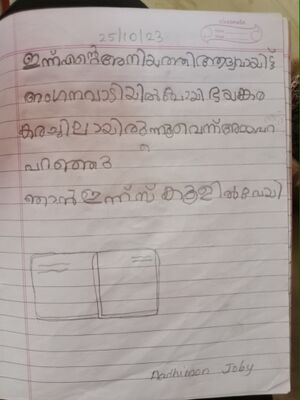 classmate
25/10/23
ഇന്ന് എന്റെ അനിയത്തി ആദ്യമായിട്ട്
അംഗനവാടിയിൽ പോയി ഭയങ്കര
കരച്ചിലായിരുന്നുവെന്ന് അമ്മ
പറഞ്ഞു
ഞാൻ ഇന്ന് സ്കൂളിൽ പോയി
Aadhimon Joby